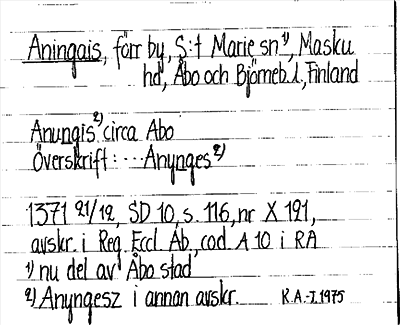 Aningais, förr by, S:t Marie sn¹⁾, Masku
hd, Åbo och Björneb. l., Finland
Anungis²⁾ circa Abo
Överskrift: ... Anynges²⁾
1371 21/12, SD 10, s. 116, nr X 191,
avskr. i Reg. Eccl. Ab., cod. A 10 i RA
1) nu del av Åbo stad
2) Anyngesz i annan avskr. R.A.-I. 1975